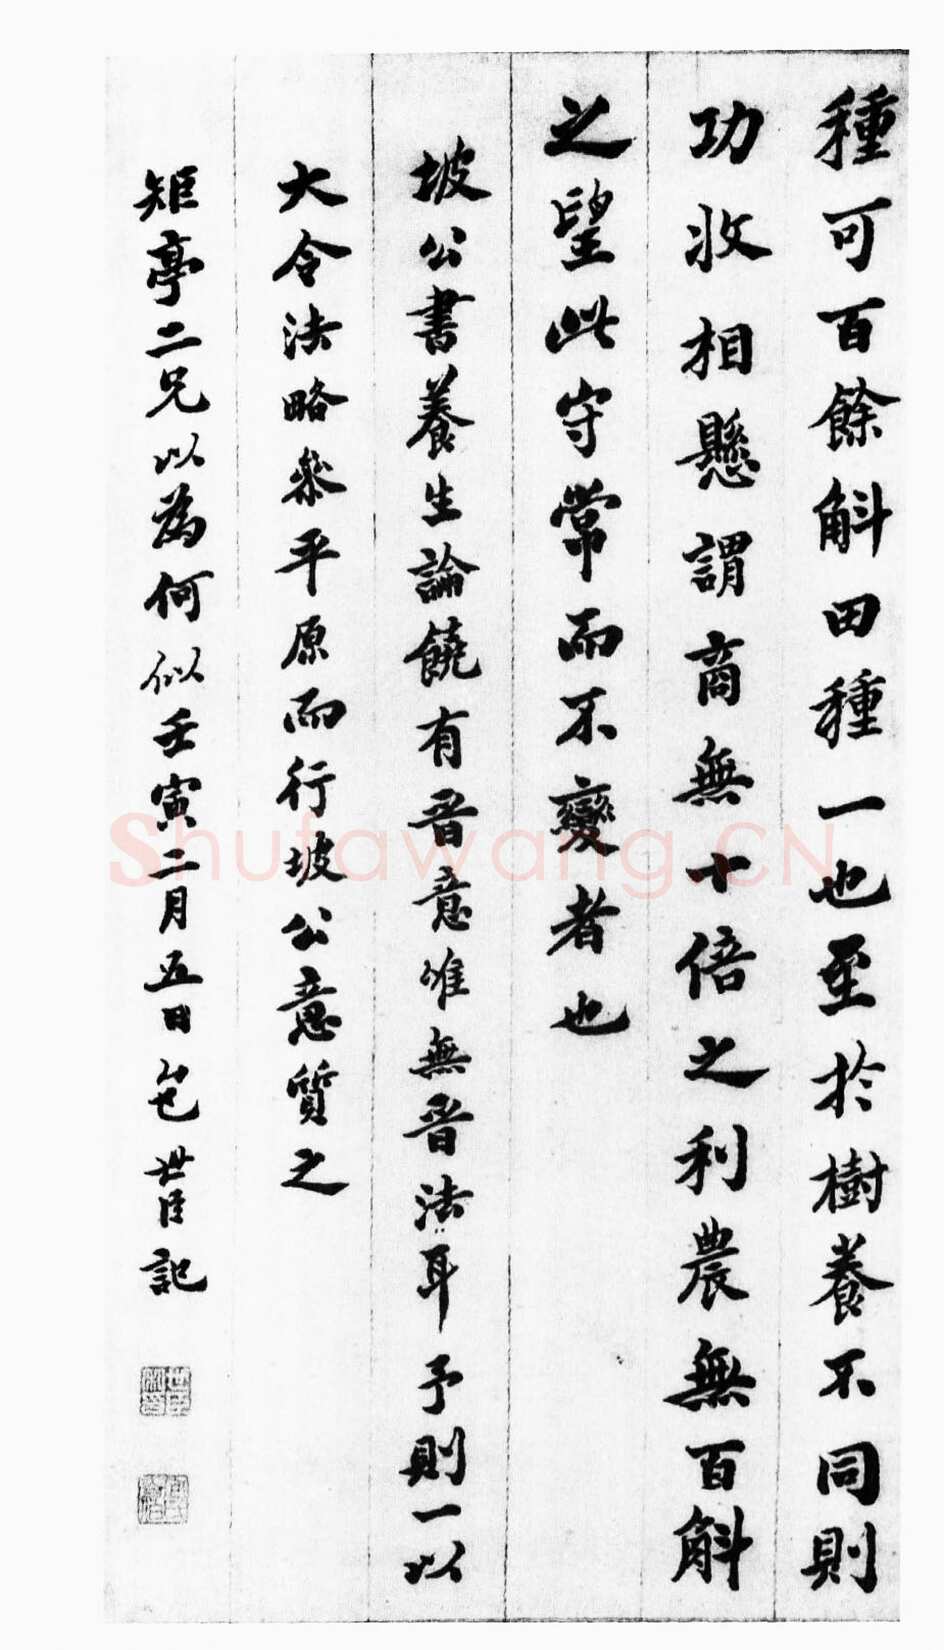 種可百餘斛田種一也至於樹養不同則
功收相懸謂商無十倍之利農無百斛
之望此守常而不變者也
坡公書養生論饒有晉意唯無晉法耳予則一以
大令法略參平原而行坡公意質之
矩亭二兄以為何似壬寅二月五日包世臣記
Shufawang.CN